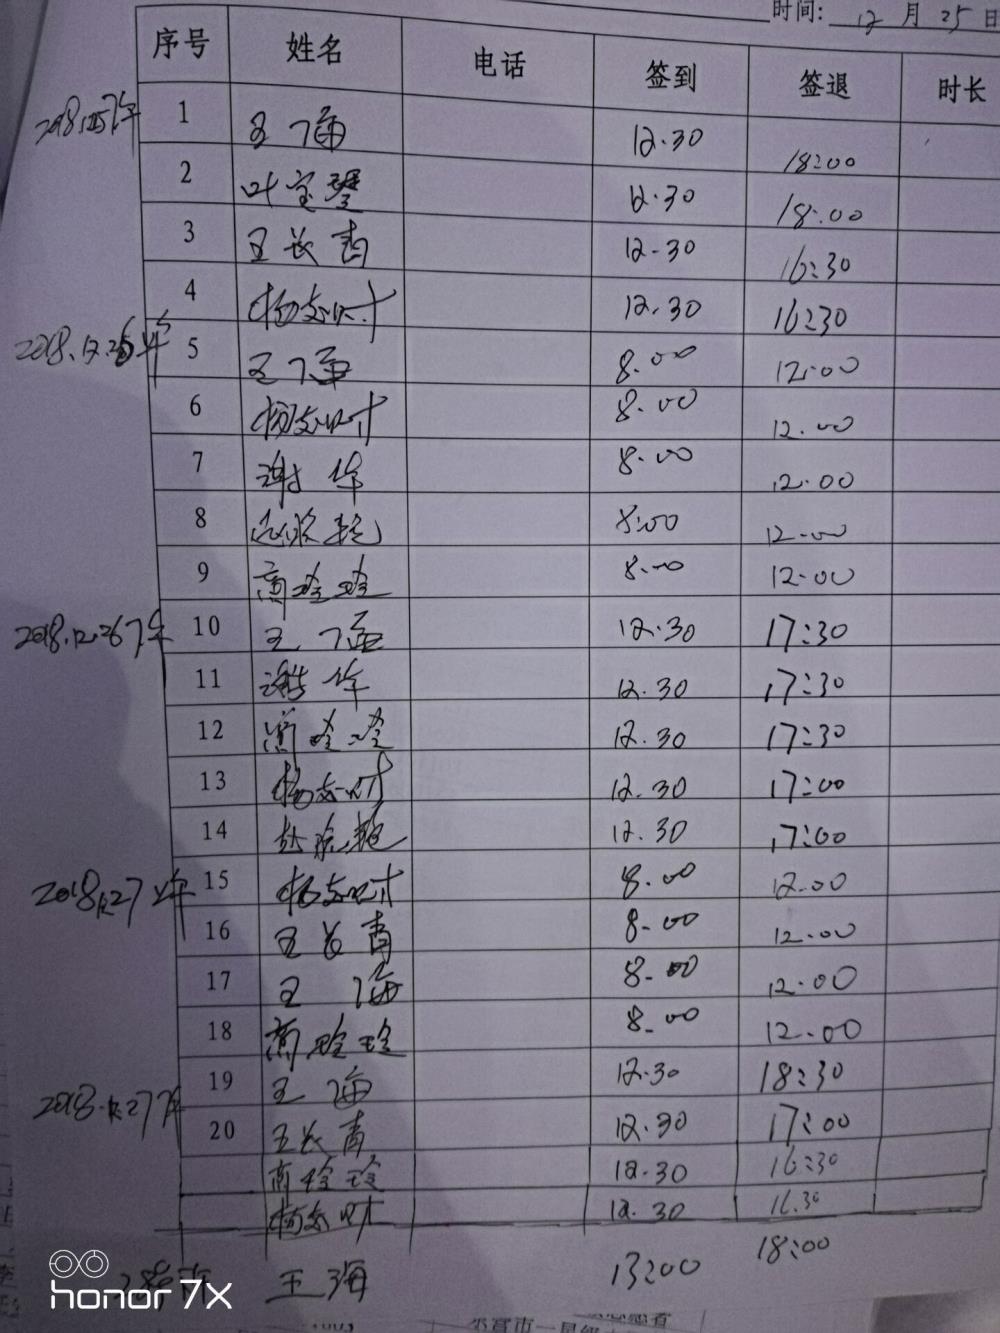 时间: 12 月 25 日
序号 姓名 电话 签到 签退 时长
1 王海 12.30 18:00
2 叶宝琴 12.30 18:00
3 王长青 12.30 16:30
4 12.30 16:30
2018.12.26上午 5 王海 8.00 12:00
6 8.00 12.00
7 谢华 8.00 12.00
8 8:00 12.00
9 高玲玲 8.00 12.00
2018.12.26下午 10 王海 12.30 17:30
11 谢华 12.30 17:30
12 高玲玲 12.30 17:30
13 12.30 17:00
14 12.30 17:00
2018.12.27上午 15 8.00 12.00
16 王长青 8.00 12.00
17 王海 8.00 12.00
18 高玲玲 8.00 12.00
2018.12.27下午 19 王海 12.30 18:30
20 王长青 12.30 17:00
高玲玲 12.30 16:30
12.30 16.30
王海 13:00 18:00
honor 7X